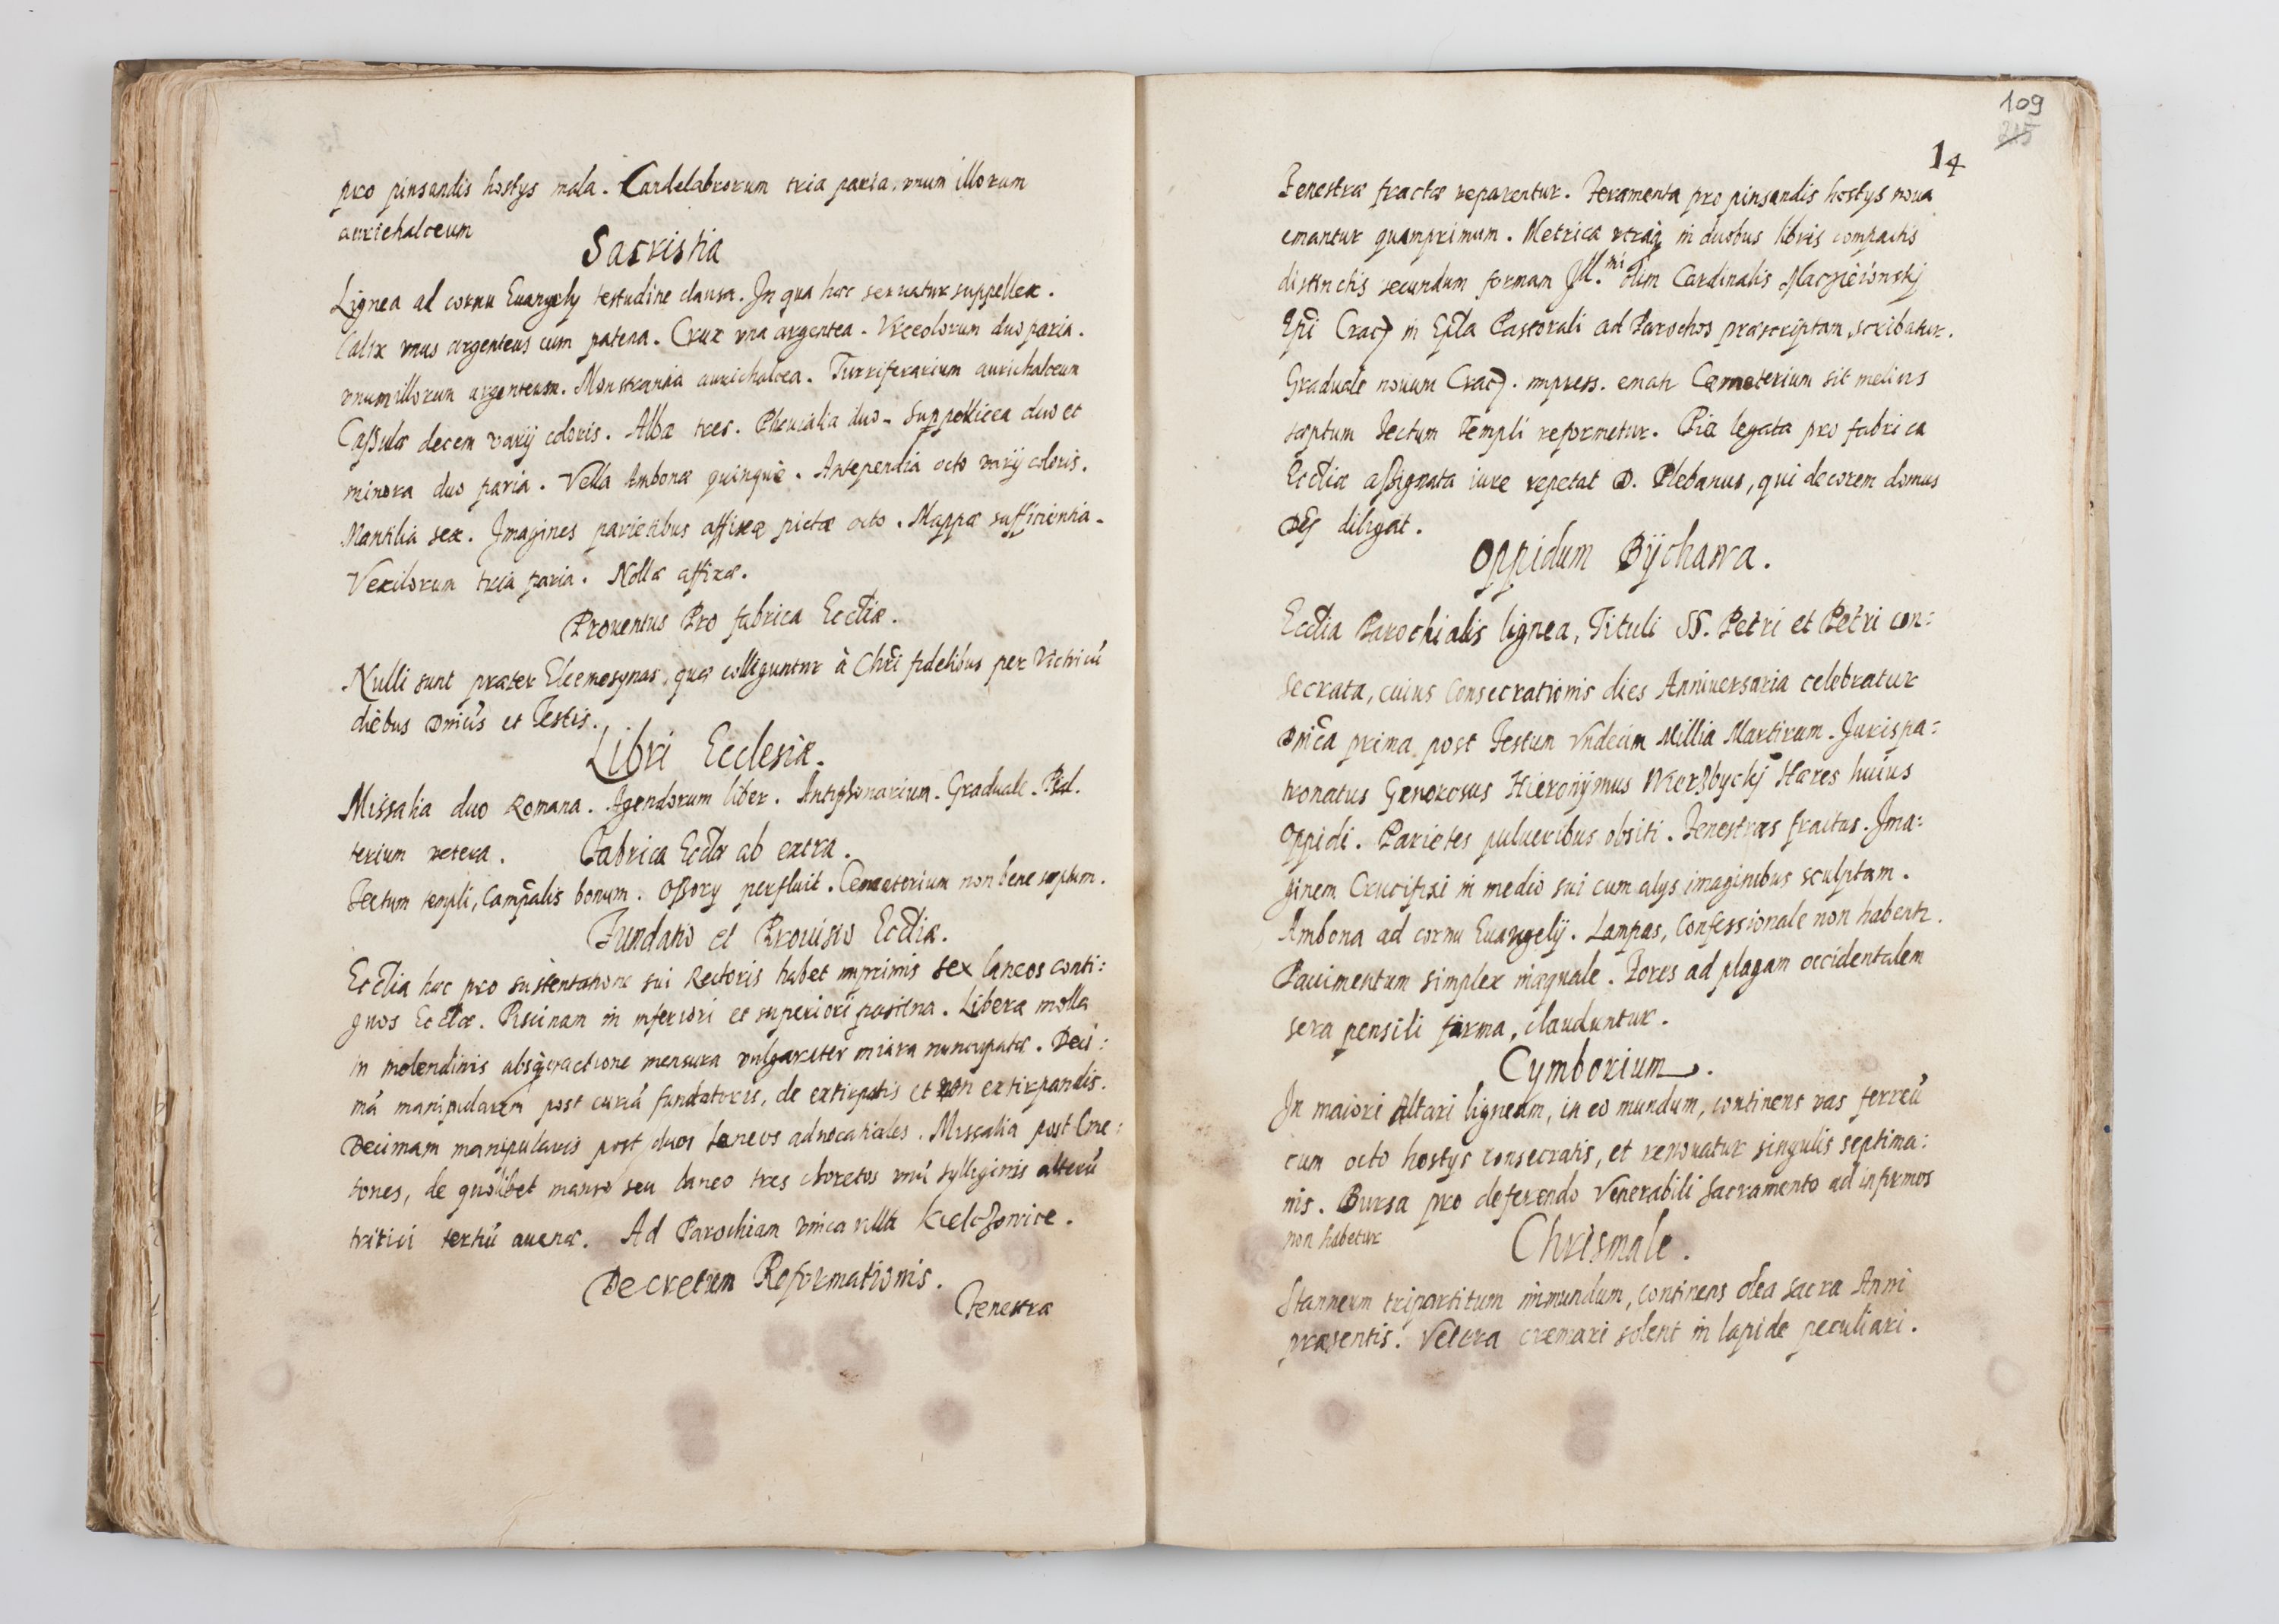 pro pinsandis hostys mala. Candelabrorum tria paria, vnum illorum
aurichalceum
Sacristia
Lignea ad cornu Euangely testudine clausa. In qua hæc seruatur suppellex.
Calix vnus argenteus cum patena. Crux vna argentea. Vrceolorum duo paria.
vnum illorum argenteum. Monstrantia aurichalcea. Turriferarium aurichalceum
Cassulæ decem varij coloris. Albæ tres. Pluuialia duo. Suppellicea duo et
minora duo paria. Vella Ambonæ quinque. Antependia octo varij coloris.
Mantilia sex. Imagines parietibus affixæ pictæ octo. Mappæ sufficientia.
Vexilorum tria paria. Nollæ affixæ.
Prouentus Pro fabrica Eccliæ.
Nulli sunt præter Eleemosynas, quæ colliguntur à Chri fidelibus per Victricũ
diebus Dnicis et Festis.
Libri Ecclesiæ.
Missalia duo Romana. Agendorum liber. Antiphonarium. Graduale. Psal.
terium vetera. Fabrica Eccliæ ab extra.
Tectum templi, Campalis bonum. Ossory perfluit. Cæmeterium non bene septum.
Fundatio et Prouisio Eccliæ.
Ecclia hæc pro sustentatione sui Rectoris habet inprimis sex laneos conti:
guos Eccliæ. Piscinam in inferiori et superiori piscina. Libera molla
in molendinis absq̃ exactione mensura vulgariter miara nuncupatæ. Deci:
mã manipularem post curiã fundatoris, de extirpatis et non extirpandis.
Decimam manipularis post duos laneos aduocatiales. Missalia post Cme:
tones, de quolibet manso seu laneo tres choretos vnũ sylliginis alterũ
tritici tertiũ auenæ. Ad Parochiam vnica villa Kielczowice.
Decretum Reformationis.
Fenestræ
109
215
14
Fenestræ fractæ reparentur. Feramenta pro pinsandis hostys noua
emantur quamprimum. Metrica vtraq̃ in duobus libris compactis
distinctis secundum formam Ill.mi olim Cardinalis Macieiowskj
Epi Crac. in Epla Pastorali ad Parochos præscriptam, scribatur.
Graduale nouum Crac. impress. ematr Cæmeterium sit melius
sæptum Tectum Templi reformetur. Pia legata pro fabrica
Eccliæ assignata iure repetat D. Plebanus, qui decorem domus
Dei diligat.
Oppidum Bÿchawa.
Ecclia Parochialis lignea, Tituli SS. Petri et Petri con:
secrata, cuius Consecrationis dies Anniuersaria celebratur
Dnica prima post Festum Vndecim Millia Martirum. Jurispa:
tronatus Generosus Hieronÿmus Wierzbyckj Hæres huius
Oppidi. Parietes pulueribus obsiti. Fenestras fractas. Ima:
ginem Crucifixi in medio sui cum alys imaginibus sculptam.
Ambona ad cornu Euangelij. Lampas, Confessionale non habentr.
Pauimentum simplex inæquale. Fores ad plagam occidentalem
sera pensili firma, clauduntur.
Cymborium.
In maiori Altari ligneum, in eo mundum, continens vas ferreũ
cum octo hostys consecratis, et renouatur singulis septima:
nis. Bursa pro deferendo Venerabili Sacramento ad infirmos
non habetur
Chrismale.
Stanneum tripartitum inmundum, continens olea sacra Anni
præsentis. Vetera cremari solent in lapide peculiari.